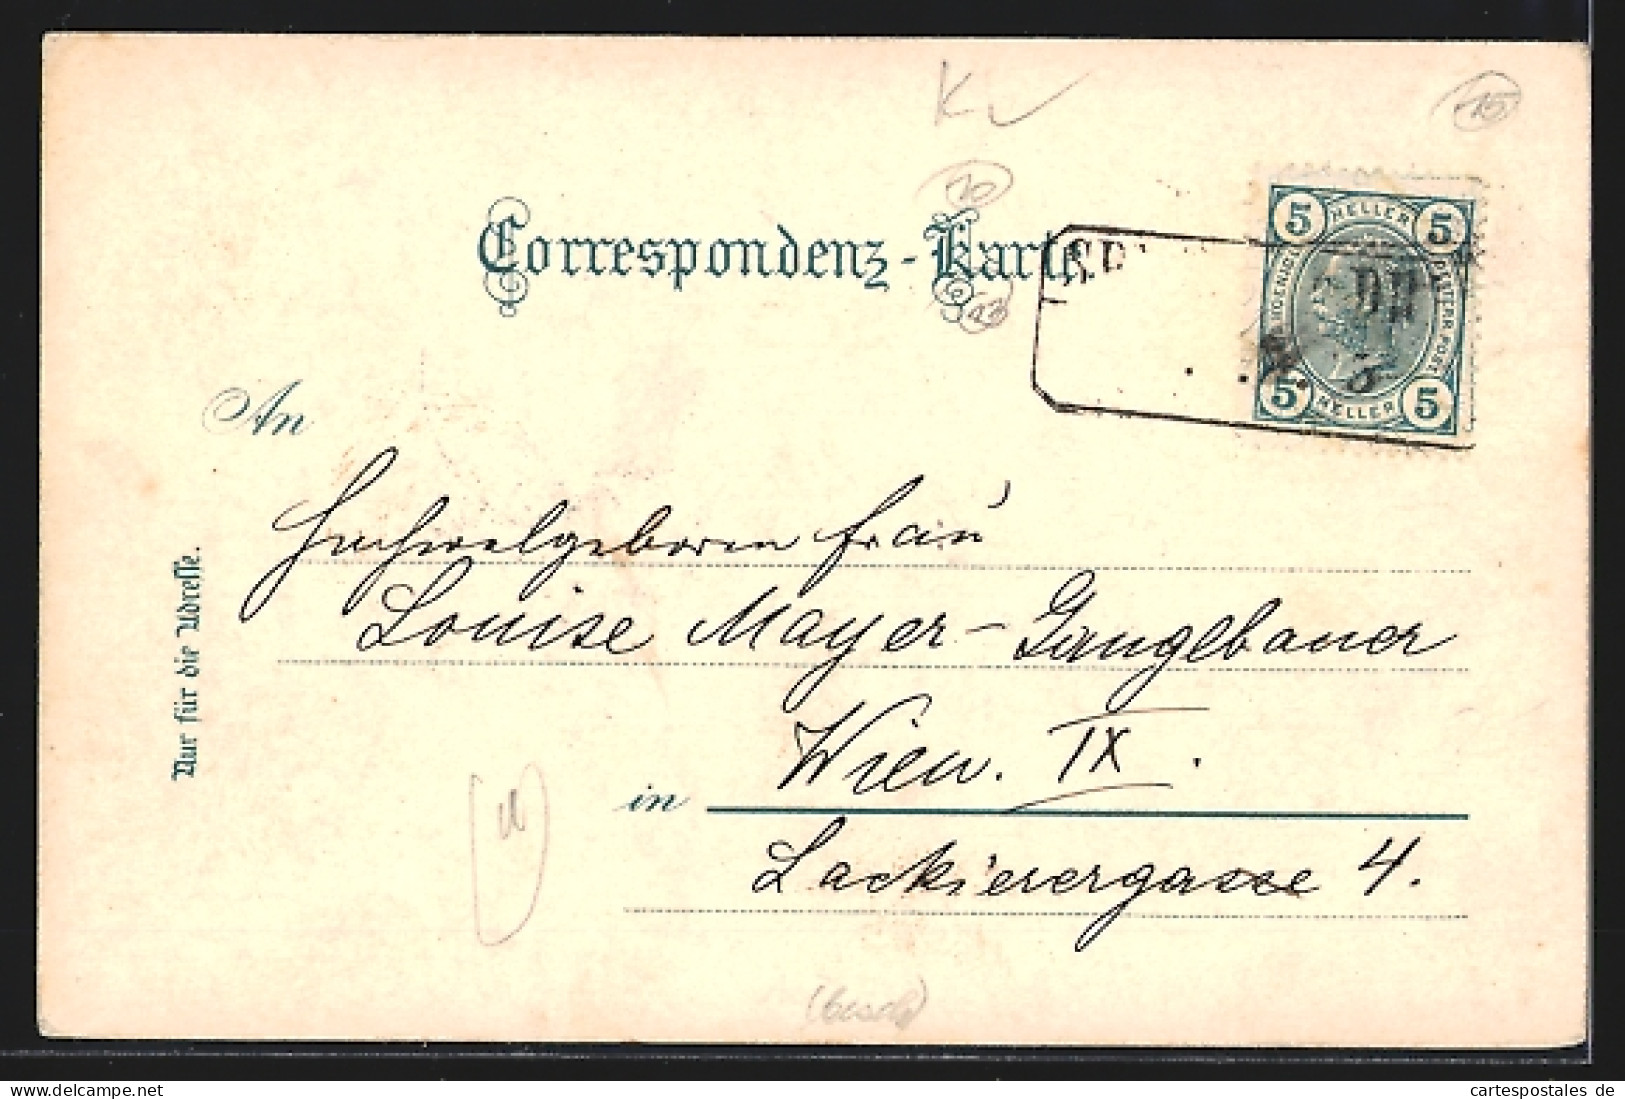 K
15
20
Correspondenz-Karte
23
5 HELLER 5
5 HELLER 5
An
Hochwolgeboren Frau
Louise Mayer-Ganglbauer
Wien. IX.
in
Lackierergasse 4.
Nur für die Adresse.
(besch)
delcampe.net
cartespostales de